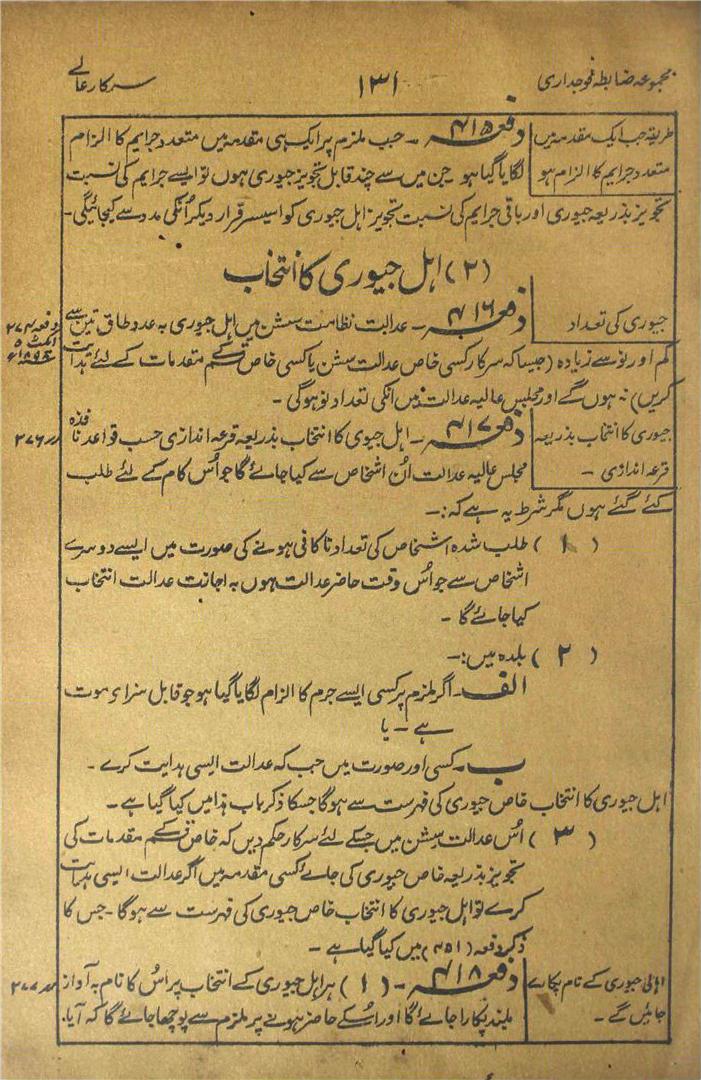 مجموعہ ضابطہ فوجداری ۱۳۱ سرکار عالے
طریقہ جب ایک مقدمہ میں
متعدد جرایم کا الزام ہو
دفعہ ۴۱۵ - جب ملزم پر ایک ہی مقدمہ میں متعدد جرایم کا الزام
لگایا گیا ہو جن میں سے چند قابل تجویز جیوری ہوں تو ایسے جرایم کی نسبت
تجویز بذریعہ جیوری اور باقی جرایم کی نسبت تجویز اہل جیوری کو اسیسر قرار دیکر اُنکی مدد سے کیجائیگی-
(۲) اہل جیوری کا انتخاب
جیوری کی تعداد
دفعہ ۴۱۶ - عدالت نظامت سشن میں اہل جیوری بہ عدد طاق تین سے
دفعہ ۲۷۴
ایکٹ ۵
۱۸۹۸ء
کم اور نو سے زیادہ (جیسا کہ سرکار کسی خاص عدالت سشن یا کسی خاص قسم مقدمات کے لئے ہدایت
کریں) نہ ہوں گے اور مجلس عالیہ عدالت میں انکی تعداد نو ہوگی -
جیوری کا انتخاب بذریعہ
قرعہ اندازی -
دفعہ ۴۱۷ - اہل جیوی کا انتخاب بذریعہ قرعہ اندازی حسب قواعد نافذہ
رر ۲۷۶
مجلس عالیہ عدالت اُن اشخاص سے کیا جائے گا جو اُس کام کے لئے طلب
کئے گئے ہوں مگر شرط یہ ہے کہ:-
( ۱ ) طلب شدہ اشخاص کی تعداد ناکافی ہونے کی صورت میں ایسے دوسرے
اشخاص سے جو اُس وقت حاضر عدالت ہوں بہ اجازت عدالت انتخاب
کیا جائے گا -
( ۲ ) بلدہ میں:-
الف - اگر ملزم پر کسی ایسے جرم کا الزام لگایا گیا ہو جو قابل سزاء موت
ہے - یا
ب - کسی اور صورت میں جب کہ عدالت ایسی ہدایت کرے -
اہل جیوری کا انتخاب خاص جیوری کی فہرست سے ہوگا جسکا ذکر باب ہذا میں کیا گیا ہے -
( ۳ ) اُس عدالت سشن میں جسکے لئے سرکار حکم دیں کہ خاص قسم مقدمات کی
تجویز بذریعہ خاص جیوری کی جاے کسی مقدمہ میں اگر عدالت ایسی ہدایت
کرے تو اہل جیوری کا انتخاب خاص جیوری کی فہرست سے ہوگا - جس کا
ذکر دفعہ (۴۵۱) میں کیا گیا ہے -
اہالی جیوری کے نام پکارے
جائیں گے -
دفعہ ۴۱۸ - ( ۱ ) ہر اہل جیوری کے انتخاب پر اُس کا نام بہ آواز
رر ۲۷۷
بلند پکارا جائے گا اور اسکے حاضر ہونے پر ملزم سے پوچھا جائے گا کہ آیا.